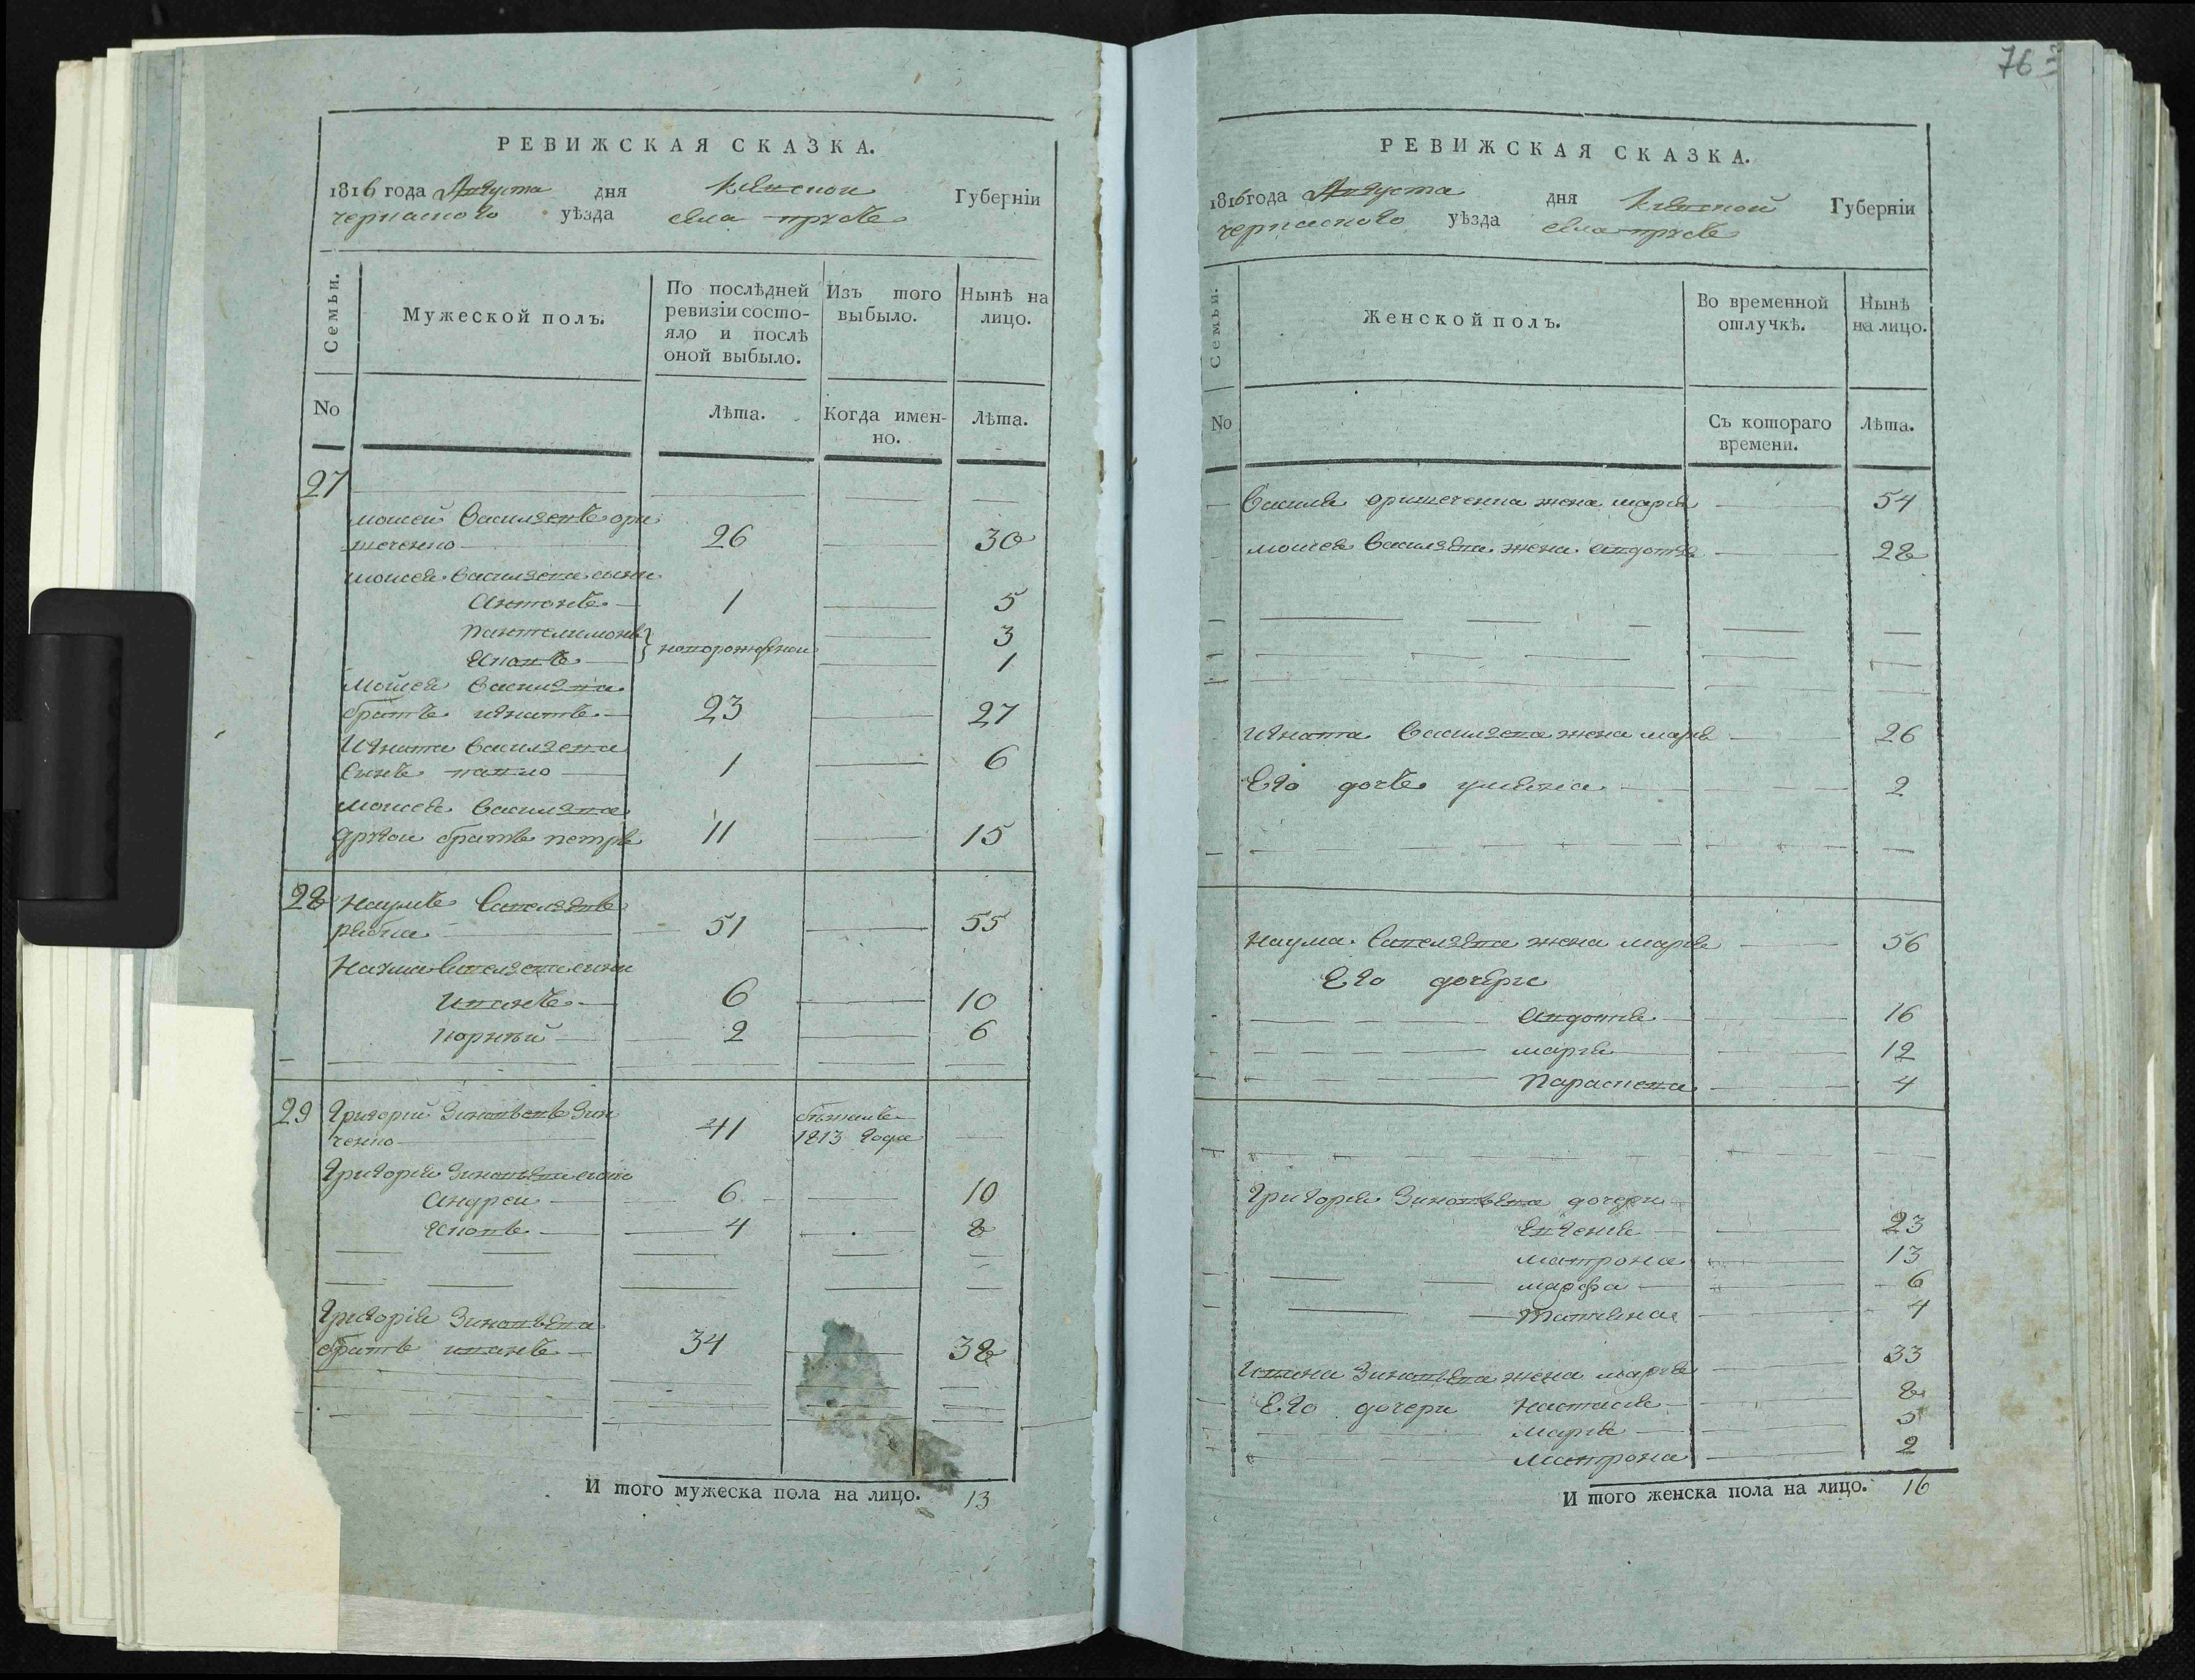 РЕВИЖСКАЯ СКАЗКА.
1816 года Августа дня Киевскои Губернїи
черкаского уѣзда села
Семьи.
Мужеской полъ.
По послѣдней ревизїи состо-
яло и послѣ
оной выбыло.
Изъ того
выбыло.
Нынѣ на
лицо.
No
Лѣта.
Когда имен-
но.
Лѣта.
27
моисей Василевъ ори
шеченко 26 30
моисея Василева сыны
Антонъ 1 5
Пантелимонъ 3
новорожденои
Иковъ 1
Моисея Василева
братъ игнатъ 23 27
Игната Василева
сынъ павло 1 6
моисея Василева
другои братъ петръ 11 15
28 Наумъ Савелевъ
51 55
Наума Савелева сыны
иванъ 6 10
корнѣй 2 6
29 Григорий Зиновьевъ Зин
ченко 41 бѣжалъ
1813 года
Григория Зиновьева
Андреи 6 10
Иковъ 4 8
Григорїя Зиновьева
братъ иванъ 34 38
И того мужеска пола на лицо. 13
76
РЕВИЖСКАЯ СКАЗКА.
1816 года Августа дня Киевской Губернїи
черкаского уѣзда села
Семьи.
Женской полъ.
Во временной
отлучкѣ.
Нынѣ
на лицо.
No
Съ котораго
времени.
Лѣта.
Василя оришеченка жена мария 54
моисея Василева жена Авдотя 28
Игната Василева жена мария 26
Его дочь улияна 2
Наума Савелева жена мария 56
Его дочери
Авдотия 16
мария 12
Параскева 4
Григория Зиновьева дочери
Евгения 23
матрона 13
марфа 6
татияна 4
Ивана Зиновьева жена мария 33
Его дочери Настасия 8
мария 5
матрона 2
И того женска пола на лицо. 16